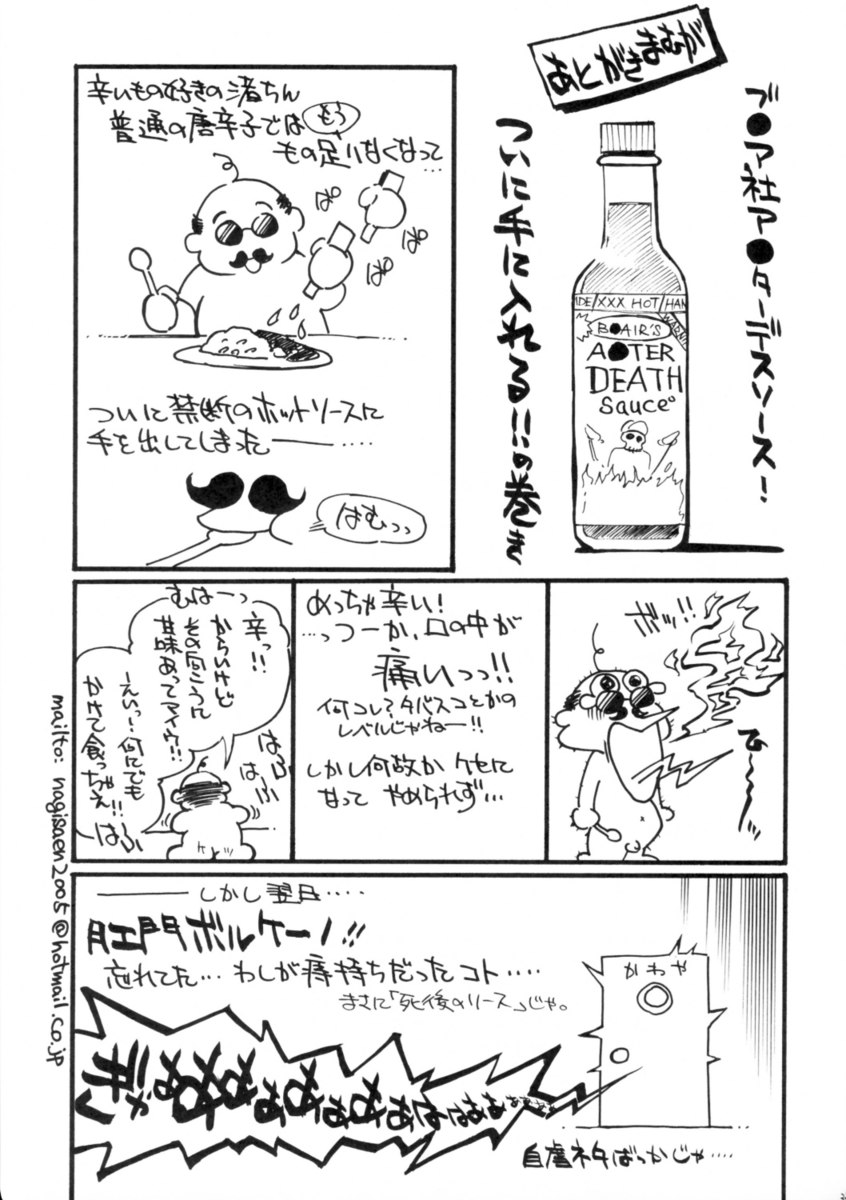 あとがきまむが
ブ●ア社ア●ターデスソース！
ついに手に入れる!!の巻き
IDE/XXX HOT/HAN
WARNIN
B●AIR'S
A●TER
DEATH
Sauce
辛いもの好きの渚ちん
普通の唐辛子ではもう
もの足りなくなって…
ぱっ
ぱっ
ぱっ
ついに禁断のホットソースに
手を出してしまった――‥‥
はむっっ
ボッ!!
ひ〜〜〜ッ
めっちゃ辛い！
…っつーか、口の中が
痛いっっ!!
何コレ？タバスコとかの
レベルじゃねー!!
しかし何故かクセに
なって やめられず…
むはーっ
辛っ!!
からいけど
その向こうに
甘味あってマイウ!!
ーえいっ！何にでも
かけて食っちゃえ!!
はふ
はふ
はふ
―――しかし翌日‥‥
肛門ボルケーノ!!
忘れてた…わしが痔持ちだったコト‥‥
まさに「死後のソース」じゃ。
かわや
自虐ネタばっかじゃ‥‥
mailto: nagisaen2005@hotmail.co.jp